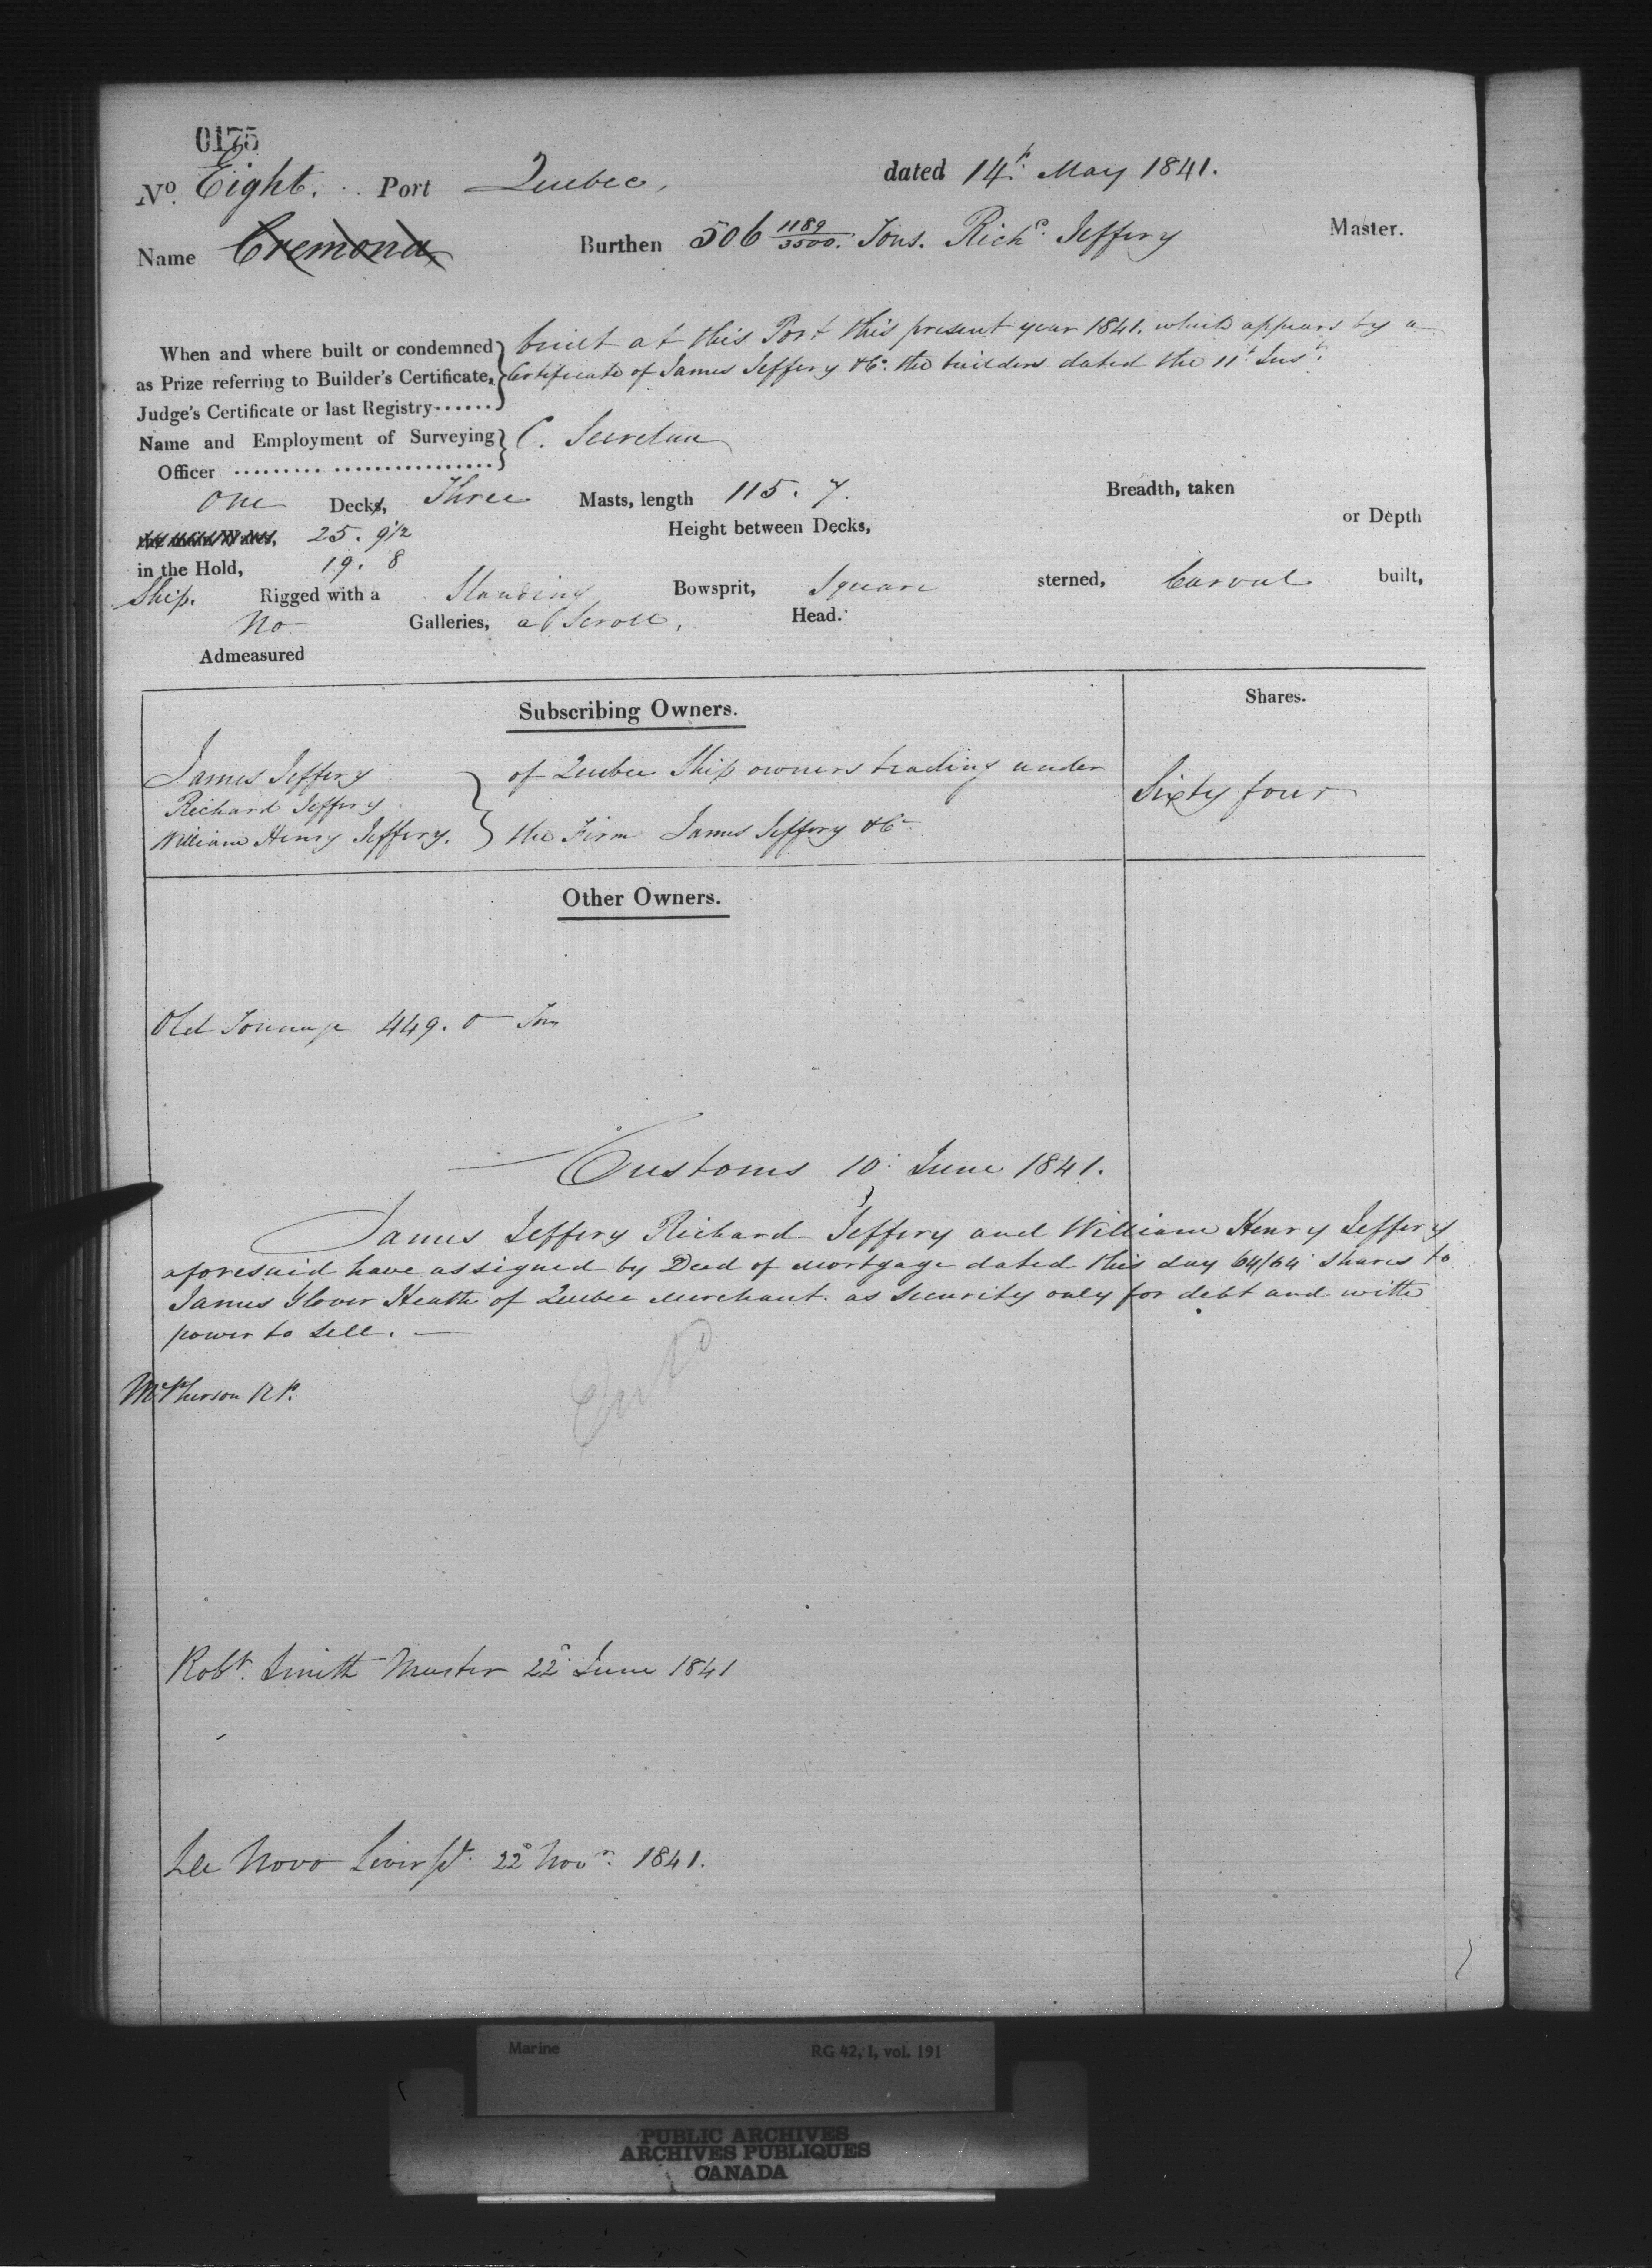 0175
No. Eight. Port Quebec, dated 14th May 1841.
Name Cremona Burthen 506 1189/3500 Tons. Richd. Jeffery Master.
When and where built or condemned } built at this Port this present year 1841. which appears by a
as Prize referring to Builder's Certificate, } Certificate of James Jeffery & Co. the builders dated the 11th Inst.
Judge's Certificate or last Registry
Name and Employment of Surveying } C. Secretan
Officer
One Decks, Three Masts, length 115. 7. Breadth, taken
25. 9 1/2 Height between Decks, or Depth
in the Hold, 19. 8
Ship. Rigged with a Standing Bowsprit, Square sterned, Carvel built,
No Galleries, a Scroll, Head.
Admeasured
Subscribing Owners. Shares.
James Jeffery } of Quebec Ship owners trading under
Richard Jeffery Sixty four
William Henry Jeffery. } the Firm James Jeffery & Co.
Other Owners.
Old Tonnage 449. 0 Tons
Customs 10: June 1841.
James Jeffery Richard Jeffery and William Henry Jeffery
aforesaid have assigned by Deed of Mortgage dated this day 64/64 Shares to
James Glover Heath of Quebec Merchant. as Security only for debt and with
power to Sell.
McPherson N P.
Robt. Smith Master 22d June 1841
De Novo Liverpl. 22d Novr. 1841.
Marine RG 42, I, vol. 191
PUBLIC ARCHIVES
ARCHIVES PUBLIQUES
CANADA